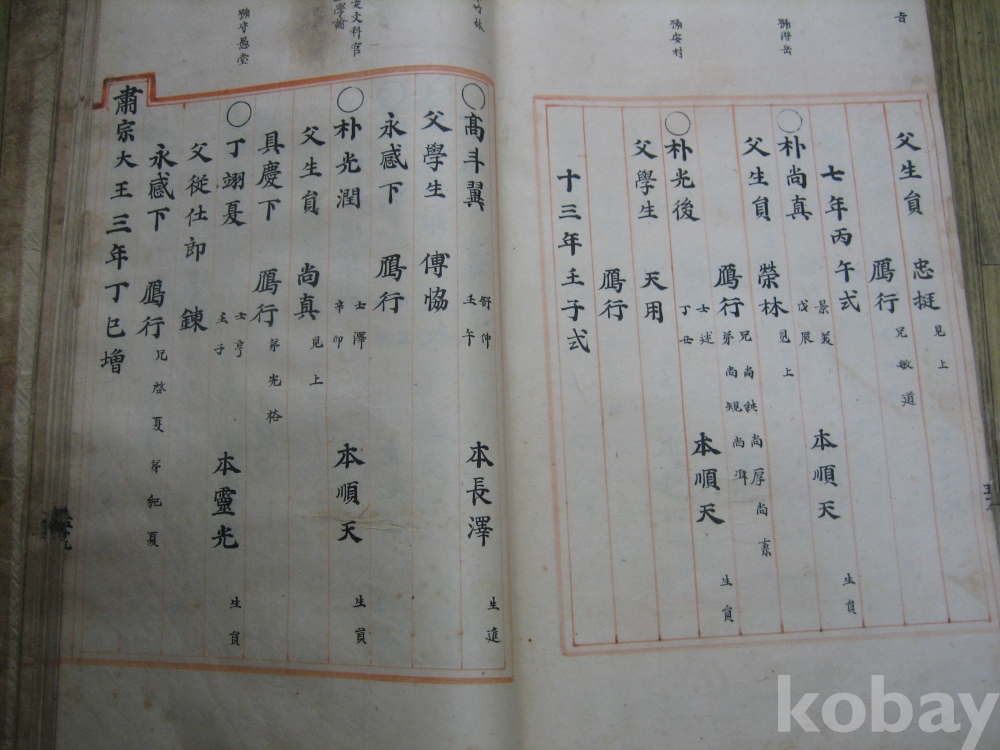 父生員 忠挺 見上
鴈行 兄敏道
七年丙午式
號潛岳
○朴尚真 景美 戊辰 本順天 生員
父生員 榮林 見上
鴈行 兄尚 尚厚尚素 弟尚規尚
號安村
○朴光後 士述 丁丑 本順天 生員
父學生 天用
鴈行
十三年壬子式
○高斗翼 仲 壬午 本長澤 生進
父學生 傅恊
永感下 鴈行
文科官
○朴光潤 士澤 辛卯 本順天 生員
父生員 尚真 見上
具慶下 鴈行 弟光
號守愚堂
○丁翊夏 士亨 子 本靈光 生員
父從仕郎 鍊
永感下 鴈行 兄啓夏 弟紀夏
肅宗大王三年丁巳增
kobay